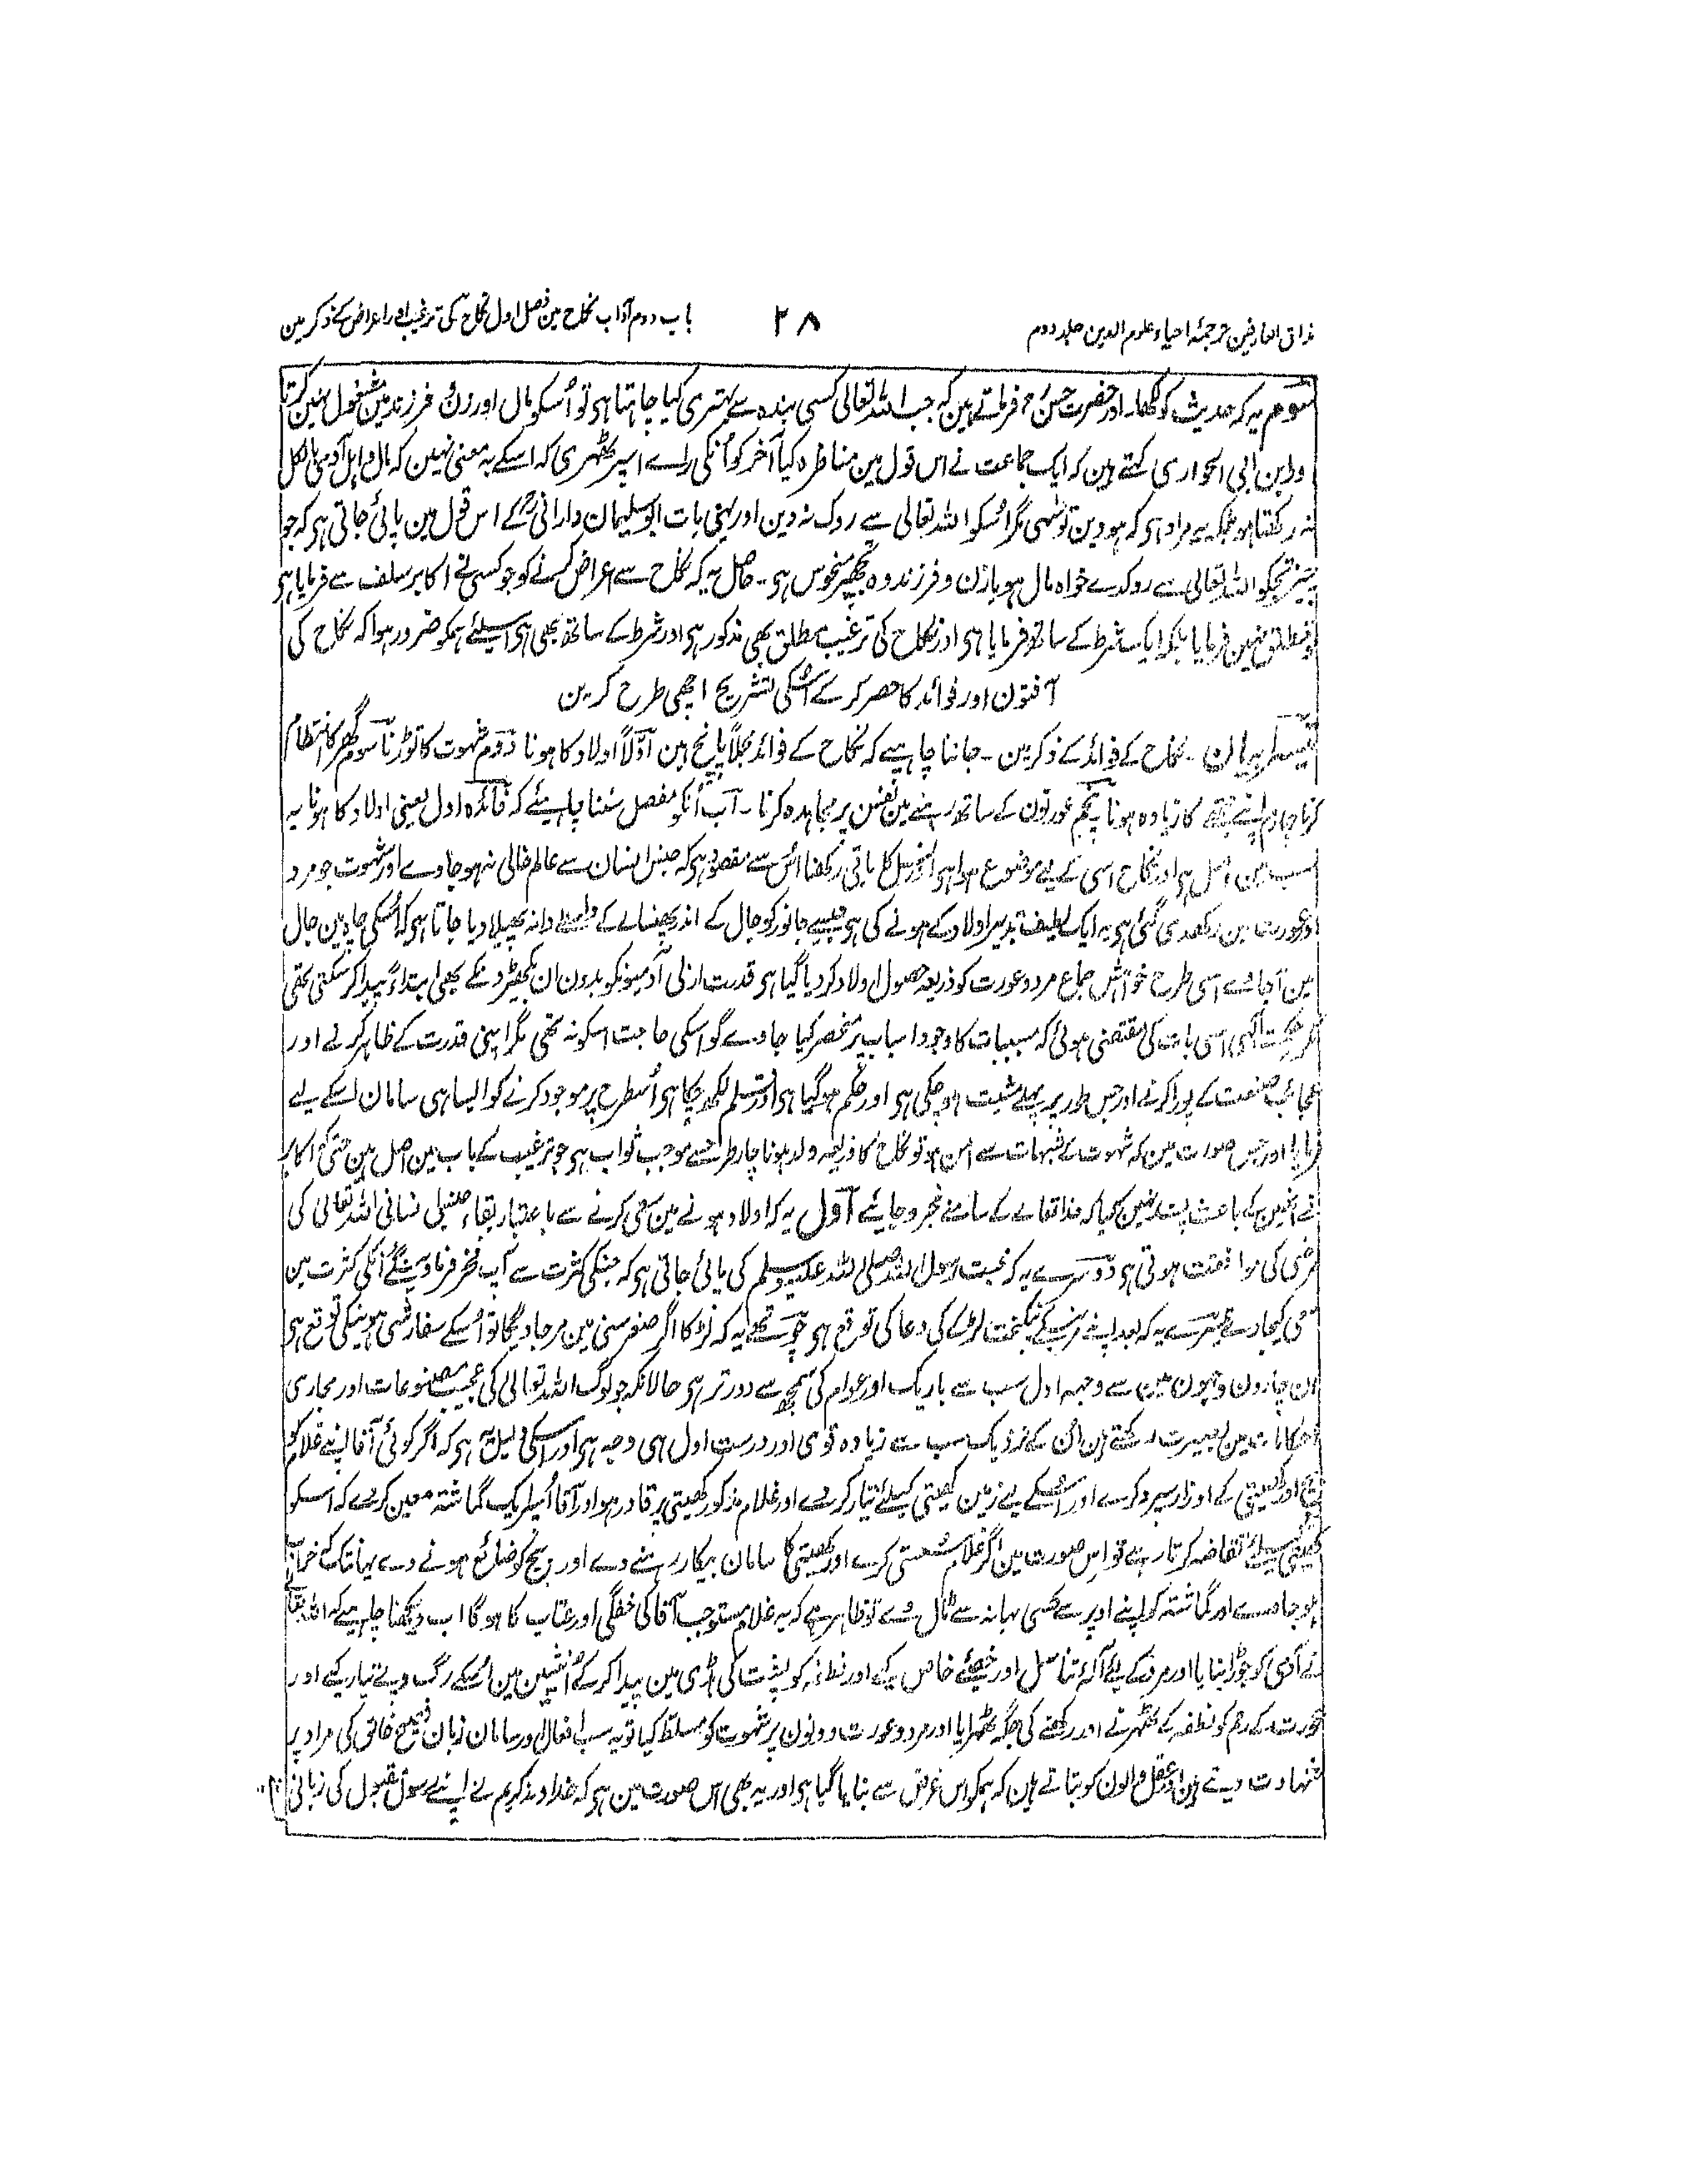 مذاق العارفین ترجمۂ احیاء علوم الدین جلد دوم
۲۸
باب دوم آداب نکاح مین فصل اول نکاح کی ترغیب اور اعراض کے ذکر مین
سوم یہ کہ حدیث کو لکھا۔ اور حضرت حسنؒ فرماتے ہین کہ جب اللہ تعالی کسی بندہ سے بہتری کیا چاہتا ہی تو اُسکو مال اور زن و فرزند مین مشغول نہین کرتا
وابن ابی الحواری کہتے ہین کہ ایک جماعت نے اس قول مین مناظرہ کیا آخر کو اُنکی راے اسپر ٹھہری کہ اسکے یہ معنی نہین کہ مال و اہل آدمی بالکل
نہ رکھتا ہو بلکہ یہ مراد ہی کہ ہووین تو سہی مگر اُسکو اللہ تعالی سے روک نہ دین اور یہی بات ابو سلیمان دارانیؒ کے اس قول مین پائی جاتی ہی کہ جو
چیز تجکو اللہ تعالی سے روکدے خواہ مال ہو یا زن و فرزند وہ تجھپر منحوس ہی۔ حاصل یہ کہ نکاح سے اعراض کرنے کو جو کسی نے اکابر سلف سے فرمایا ہی
تو مطلق نہین فرمایا بلکہ ایک شرط کے ساتھ فرمایا ہی اور نکاح کی ترغیب مطلق بھی مذکور ہی اور شرط کے ساتھ بھی ہی اسیلئے ہمکو ضرور ہوا کہ نکاح کی
آفتون اور فوائد کا حصر کر کے اُسکی تشریح اچھی طرح کرین
تیسرا بیان۔ نکاح کے فوائد کے ذکر مین۔ جاننا چاہیے کہ نکاح کے فوائد مجملاً پانچ ہین اوّلاً اولاد کا ہونا دوم شہوت کا توڑنا سوم گھر کا انتظام
کرنا چہارم اپنے جتھے کا زیادہ ہونا پنجم عورتون کے ساتھ رہنے مین نفس پر مجاہدہ کرنا۔ اب اُنکو مفصل سُننا چاہیئے کہ فائدہ اول یعنی اولاد کا ہونا یہ
سب مین اصل ہی اور نکاح اسی کے لیے موضوع ہوا ہی اور نسل کا باقی رکھنا اُس سے مقصود ہی کہ جنس انسان سے عالم خالی نہ ہو جاوے اور شہوت جو مرد
اور عورت مین رکھدی گئی ہی یہ ایک لطیف تدبیر اولاد کے ہونے کی ہی جیسے جانور کو جال کے اندر پھنسانے کے واسطے دانہ پھیلا دیا جاتا ہی کہ اُسکی چاہ مین جال
مین آجاے اسی طرح خواہش جماع مرد و عورت کو ذریعہ حصول اولاد کر دیا گیا ہی قدرت ازلی آدمیونکو بدون ان بکھیڑونکے بھی ابتداءً پیدا کر سکتی تھی
مگر حکمت الٰہی اسی بات کی مقتضی ہوئی کہ مسببات کا وجود اسباب پر منحصر کیا جاوے گو اسکی حاجت اسکو نہ تھی مگر اپنی قدرت کے ظاہر کرنے اور
عجائب صنعت کے پورا کرنے اور جس طور پر پہلے مشیت ہو چکی ہی اور حکم ہو گیا ہی اور قلم لکھ چکا ہی اُسطرح پر موجود کرنے کو ایسا ہی سامان اسکے لیے
فرمایا اور جس صورت مین کہ شہوت کے شبہات سے امن ہو تو نکاح کا ذریعہ ولد ہونا چار طرحسے موجب ثواب ہی جو ترغیب کے باب مین اصل ہین حتی کہ اکابر
نے انھین کے باعث پسند نہین کیا کہ خدا تعالے کے سامنے مجرد جایئے اول یہ کہ اولاد ہونے مین سعی کرنے سے باعتبار بقاء جنس انسانی اللہ تعالی کی
مرضی کی موافقت ہوتی ہی دوسرے یہ کہ محبت رسول اللہ صلی اللہ علیہ وسلم کی پائی جاتی ہی کہ جنکی کثرت سے آپ فخر فرماوینگے اُنکی کثرت مین
سعی کیجاوے تیسرے یہ کہ بعد اپنے مرنے کے نیکبخت لڑکے کی دعا کی توقع ہی چوتھے یہ کہ لڑکا اگر صغر سنی مین مرجاویگا تو اُسکے سفارشی ہونیکی توقع ہی
ان چارون وجہون مین سے وجہ اول سب سے باریک اور عوام کی سمجھ سے دور تر ہی حالانکہ جو لوگ اللہ تعالی کی عجیب مصنوعات اور مجاری
احکامات مین بصیرت رکھتے ہین اُن کے نزدیک سب سے زیادہ قوی اور درست اول ہی وجہ ہی اور اسکی دلیل یہ ہی کہ اگر کوئی آقا اپنے غلام کو
بیج اور کھیتی کے اوزار سپرد کرے اور اُسکے لیے زمین کھیتی کیلئے تیار کر دے اور غلام مذکور کھیتی پر قادر ہو اور آقا اُسپر ایک گماشتہ معین کر دے کہ اسکو
کھیتی کیلئے تقاضہ کرتا رہے تو اس صورت مین اگر غلام سُستی کرے اور کھیتی کا سامان بیکار رہنے دے اور بیج کو ضائع ہونے دے یہانتک کہ خراب
ہو جاوے اور گماشتہ کو اپنے اوپر سے کسی بہانہ سے ٹال دے تو ظاہر ہے کہ یہ غلام مستوجب آقا کی خفگی اور عتاب کا ہوگا اب دیکھنا چاہیے کہ اللہ تعالے
نے آدمی کو جوڑا بنایا اور مرد کے لیے آلۂ تناسل اور خصیئے خاص کیے اور نطفہ کو پشت کی ہڈی مین پیدا کرکے اُنثیین مین اُسکے رگ و پے تیار کیے اور
عورت کے رحم کو نطفہ کے ٹھہرنے اور رکھنے کی جگہ ٹھہرایا اور مرد و عورت دونون پر شہوت کو مسلط کیا تو یہ سب افعال اور سامان زبان فصیح خالق کی مراد پر
شہادت دیتے ہین اور عقل والون کو بتاتے ہین کہ ہمکو اس غرض سے بنایا گیا ہی اور یہ بھی اس صورت مین ہی کہ خداوند کریم نے اپنے رسول مقبول کی زبانی